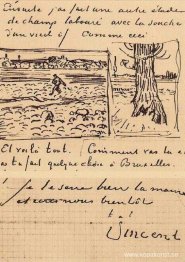 Ensuite j'ai fait une autre étude
de champ labouré avec la souche
d'un vieil if Comme ceci
Et voilà tout. Comment vas tu et
as tu fait quelque chose à Bruxelles.
je te serre bien la main
et écris nous bientôt
t. à t.
Vincent